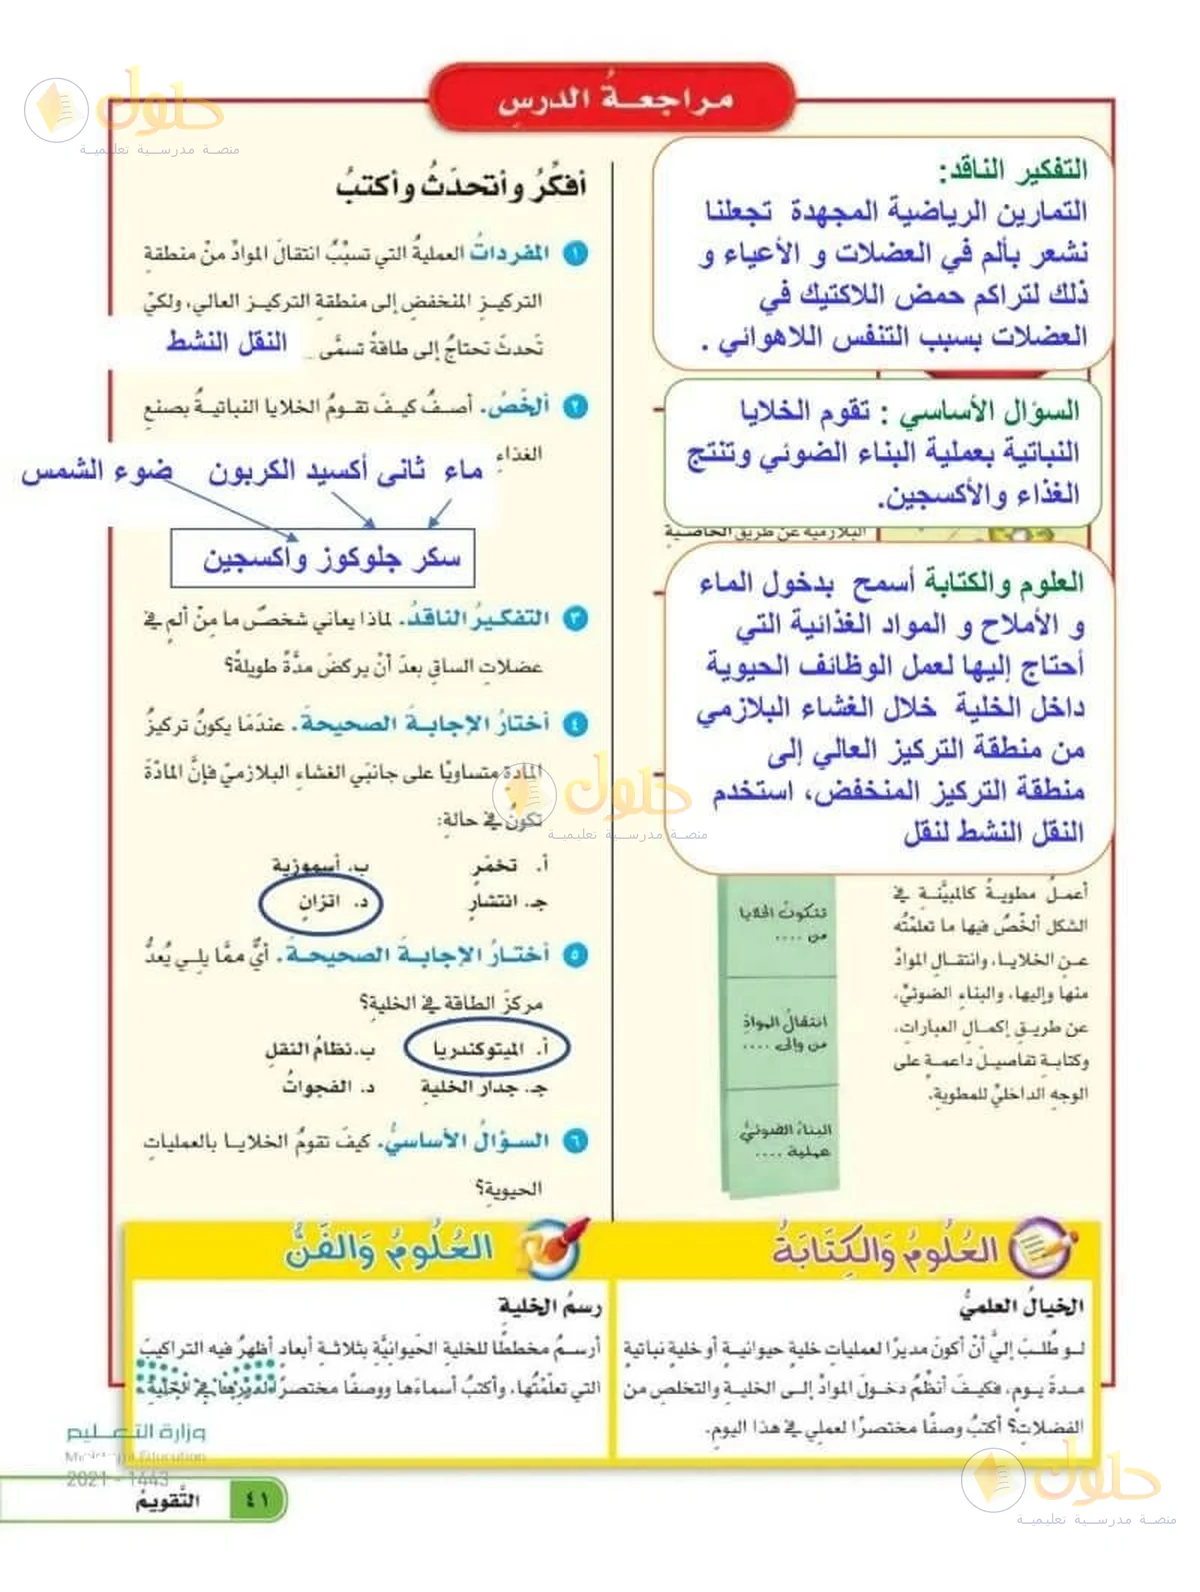 حلول
منصة مدرسية تعليمية
مراجعةُ الدرسِ
التفكير الناقد:
التمارين الرياضية المجهدة تجعلنا
نشعر بألم في العضلات و الأعياء و
ذلك لتراكم حمض اللاكتيك في
العضلات بسبب التنفس اللاهوائي .
السؤال الأساسي : تقوم الخلايا
النباتية بعملية البناء الضوئي وتنتج
الغذاء والأكسجين.
البلازمية عن طريق الخاصية
العلوم والكتابة أسمح بدخول الماء
و الأملاح و المواد الغذائية التي
أحتاج إليها لعمل الوظائف الحيوية
داخل الخلية خلال الغشاء البلازمي
من منطقة التركيز العالي إلى
منطقة التركيز المنخفض، استخدم
النقل النشط لنقل
أعملُ مطويةً كالمبيَّنةِ في
الشكل ألخِّصُ فيها ما تعلمْتُه
عنِ الخلايا، وانتقالِ الموادِّ
منها وإليها، والبناءِ الضوئيِّ،
عن طريقِ إكمالِ العباراتِ،
وكتابةِ تفاصيلَ داعمةٍ على
الوجهِ الداخليِّ للمطويةِ.
تتكونُ الخلايا
من ....
انتقالُ الموادِّ
من وإلى ....
البناءُ الضوئيُّ
عملية ....
أفكِّرُ وأتحدَثُ وأكتبُ
١ المفرداتُ العمليةُ التي تسبِّبُ انتقالَ الموادِّ منْ منطقةِ
التركيزِ المنخفضِ إلى منطقةِ التركيزِ العالي، ولكيْ
تَحدثَ تحتاجُ إلى طاقةٍ تسمَّى النقل النشط
٢ ألخّصُ. أصفُ كيفَ تقومُ الخلايا النباتيةُ بصنعِ
الغذاءِ
ماء ثانى أكسيد الكربون ضوء الشمس
سكر جلوكوز واكسجين
٣ التفكيرُ الناقدُ. لماذا يعاني شخصٌ ما مِنْ ألمٍ في
عضلاتِ الساقِ بعدَ أنْ يركضَ مدَّةً طويلةً؟
٤ أختارُ الإجابةَ الصحيحةَ. عندَمَا يكونُ تركيزُ
المادةِ متساويًا على جانبَيِ الغشاءِ البلازميِّ فإنَّ المادّةَ
تكونُ في حالةِ:
أ. تخمّرٍ ب. أسموزيةٍ
جـ. انتشارٍ د. اتزانٍ
٥ أختارُ الإجابةَ الصحيحةَ. أيٌّ ممَّا يلي يُعدُّ
مركزَ الطاقةِ في الخليةِ؟
أ. الميتوكندريا ب. نظامُ النقلِ
جـ. جدار الخليةِ د. الفجواتُ
٦ السؤالُ الأساسيُّ. كيفَ تقومُ الخلايا بالعملياتِ
الحيويةِ؟
العُلُومُ وَالكِتَابَةُ
الخيالُ العلميُّ
لو طُلبَ إليَّ أنْ أكونَ مديرًا لعملياتِ خليةٍ حيوانيةٍ أو خليةٍ نباتيةٍ
مدةَ يومٍ، فكيفَ أنظمُ دخولَ الموادِّ إلى الخليةِ والتخلصِ من
الفضلاتِ؟ أكتبُ وصفًا مختصرًا لعملي في هذا اليومِ.
العُلُومُ وَالفَنُّ
رسمُ الخليةِ
أرسمُ مخططًا للخليةِ الحَيوانيَّةِ بثلاثةِ أبعادٍ أظهرُ فيه التراكيبَ
التي تعلمْتُها، وأكتبُ أسماءَها ووصفًا مختصرًا لدورِها في الخليةِ.
وزارة التعليم
Ministry of Education
2021 - 1443
٤١ التَّقويمُ
حلول
منصة مدرسية تعليمية
حلول
منصة مدرسية تعليمية